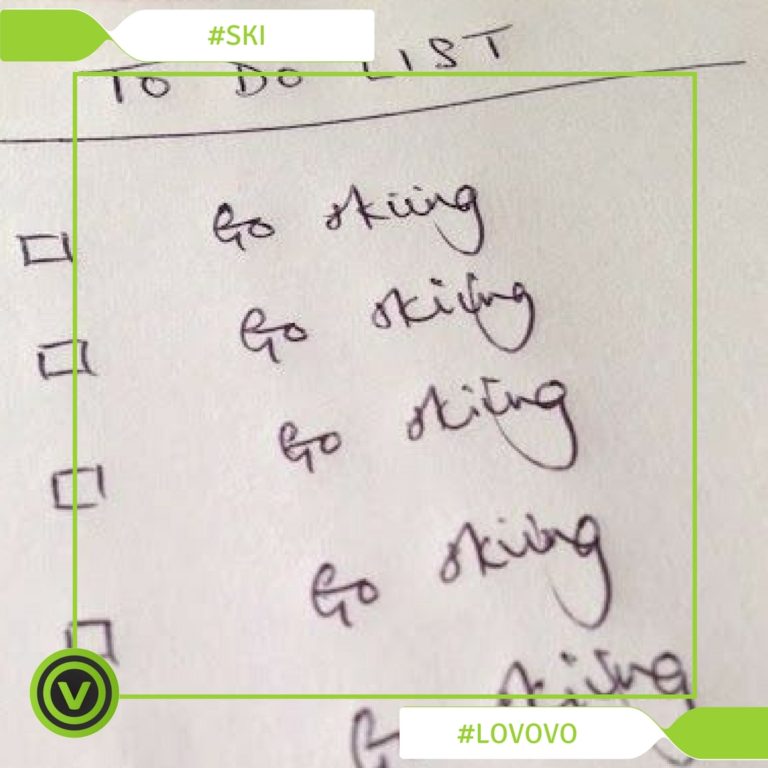 #SKI
TO DO LIST
Go skiing
Go skiing
Go skiing
Go skiing
Go skiing
V
#LOVOVO